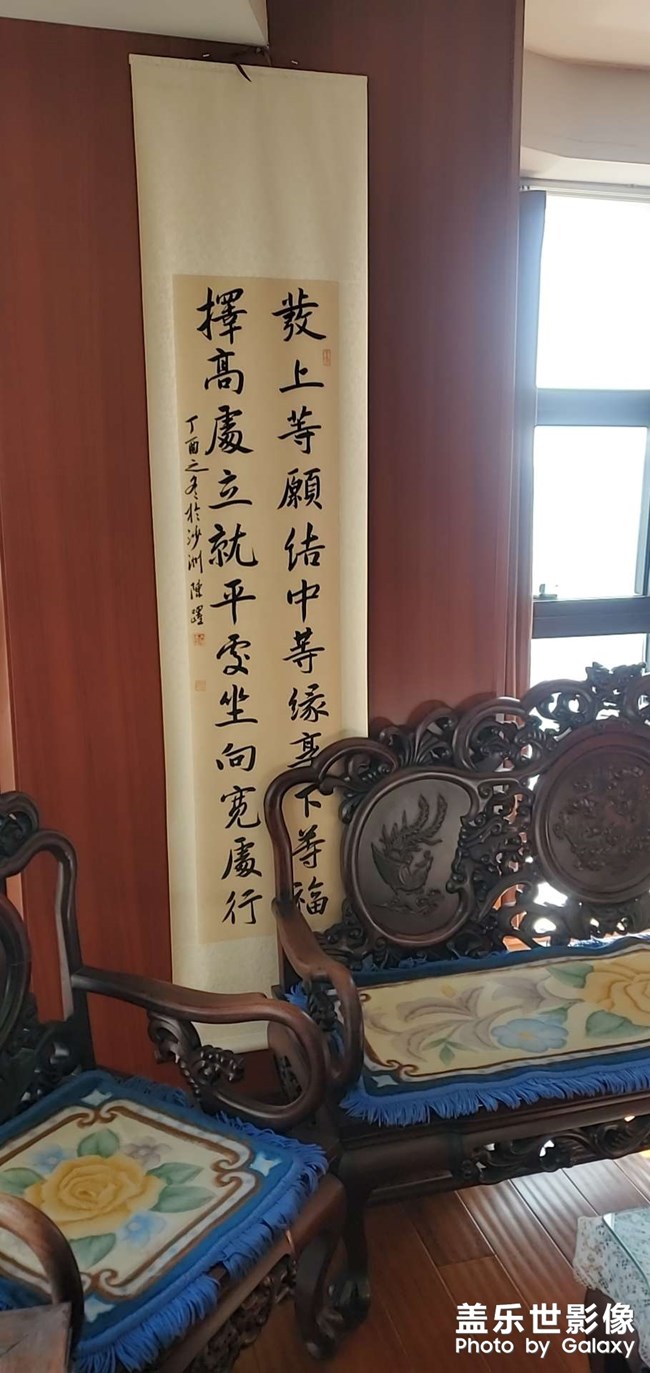 發上等願结中等缘享下等福
擇高處立就平处坐向宽處行
丁酉之冬於沙洲陈躍
盖乐世影像
Photo by Galaxy